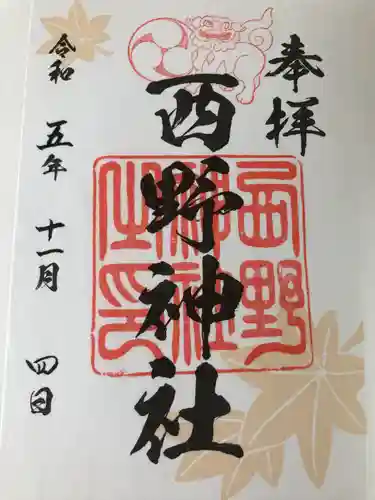 奉拝
西野神社
西野神社之印
令和五年十一月四日